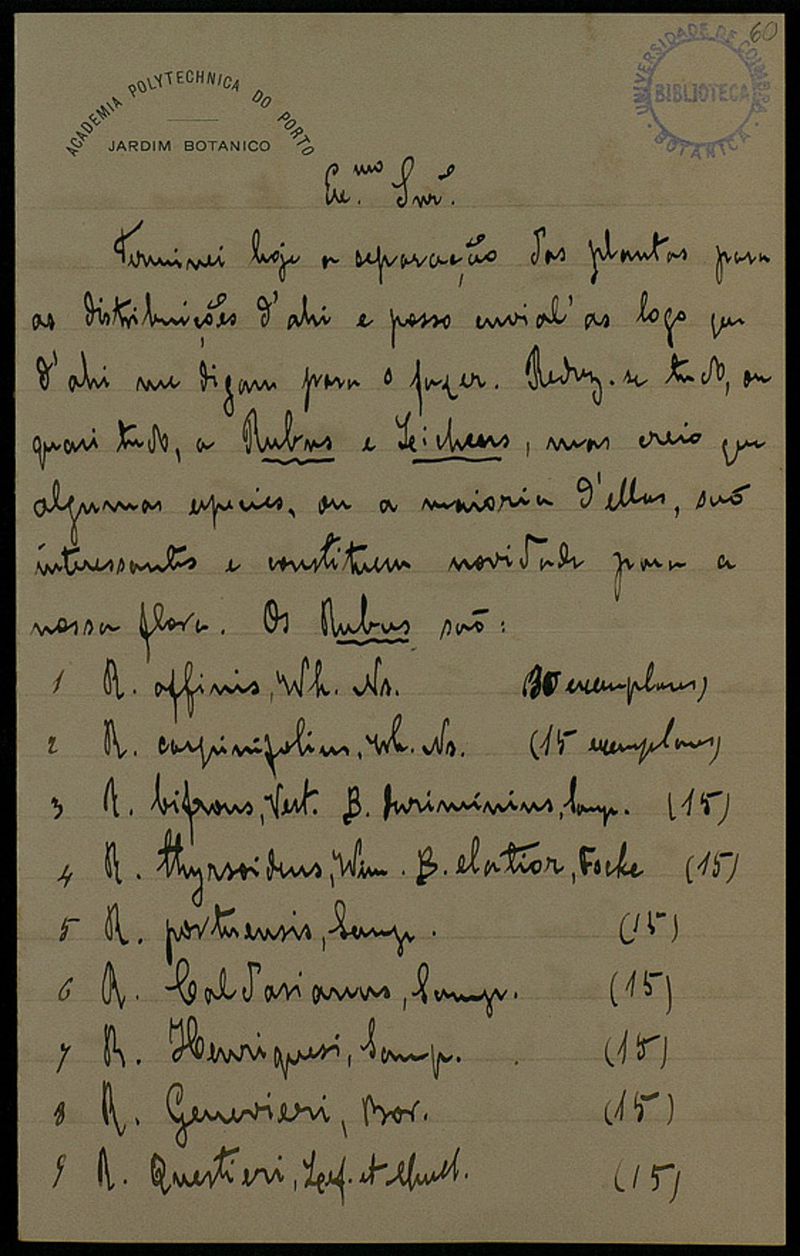 60
UNIVERSIDADE DE COIMBRA
BIBLIOTECA
BOTANICA
ACADEMIA POLYTECHNICA DO PORTO
JARDIM BOTANICO
Ex.mo Snr.
Terminei hoje a separação das plantas para
as distribuições d'ahi e posso envial'as logo que
d'ahi me digam para o fazer. Reduz-se tudo, ou
quasi tudo, a Rubus e Leicheens, mas creio que
algumas especies, ou a maioria d'ellas, são
interessantes e constituem novidade para a
nossa flora. Os Rubus são:
1 R. affinis, Wh. Ns. 30 exemplares)
2 R. carpinifolius, Wh. Ns. (15 exemplares)
3 R. bifrons, Vest. B. duriminius, Samp. (15)
4 R. thyrsoideus, Wim. B. elatior, Focke (15)
5 R. portuensis, Samp. (15)
6 R. Caldasianus, Samp. (15)
7 R. Henriquesi, Samp. (15)
8 R. Genevieri, Bor. (15)
9 R. Questieri, Lef. et Muell. (15)